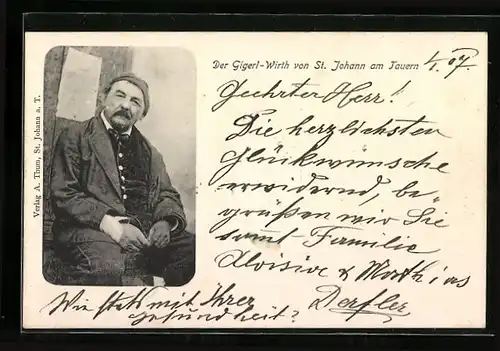 Verlag A. Thum, St. Johann a. T.
Der Gigerl-Wirth von St. Johann am Tauern
Geehrter Herr!
Die herzlichsten
Glückwünsche
erwidernd, be-
grüßen wir Sie
samt Familie
Aloisia & Mathias
Derfler
Wie steht mit Ihrer
Gesundheit?